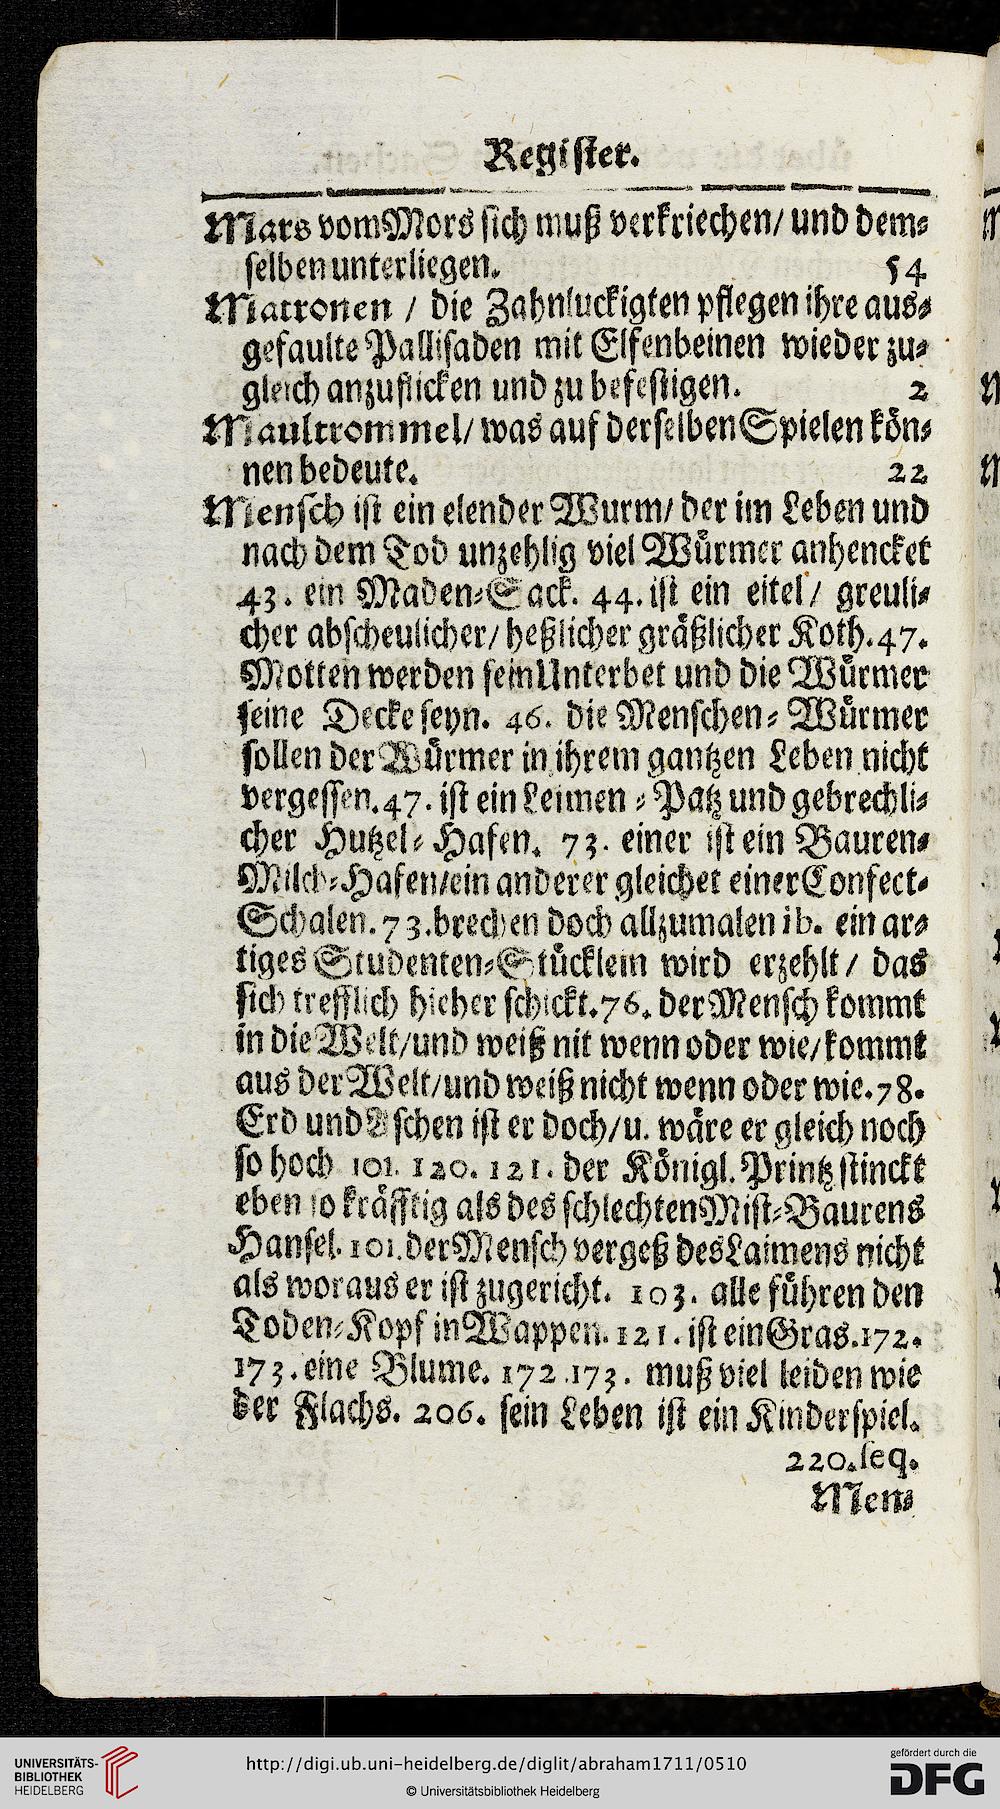 Register.
Mars vom Mors sich muß verkriechen/ und dem-
selben unterliegen. 54
Matronen / die Zahnluckigten pflegen ihre aus-
gefaulte Pallisaden mit Elfenbeinen wieder zu-
gleich anzuflicken und zu befestigen. 2
Maultrommel/ was auf derselben Spielen kön-
nen bedeute. 22
Mensch ist ein elender Wurm/ der im Leben und
nach dem Tod unzehlig viel Würmer anhencket
43. ein Maden-Sack. 44. ist ein eitel/ greuli-
cher abscheulicher/ heßlicher gräßlicher Koth. 47.
Motten werden sein Unterbet und die Würmer
seine Decke seyn. 46. die Menschen-Würmer
sollen der Würmer in ihrem gantzen Leben nicht
vergessen. 47. ist ein Leimen-Patz und gebrechli-
cher Hutzel-Hafen. 73. einer ist ein Bauren-
Milch-Hafen/ ein anderer gleichet einer Confect-
Schalen. 73. brechen doch allzumalen ib. ein ar-
tiges Studenten-Stücklein wird erzehlt / das
sich trefflich hieher schickt. 76. der Mensch kommt
in die Welt/ und weiß nit wenn oder wie/ kommt
aus der Welt/ und weiß nicht wenn oder wie. 78.
Erd und Aschen ist er doch/ u. wäre er gleich noch
so hoch 101. 120. 121. der Königl. Printz stinckt
eben so kräfftig als des schlechten Mist-Baurens
Hansel. 101. der Mensch vergeß des Laimens nicht
als woraus er ist zugericht. 103. alle führen den
Toden-Kopf in Wappen. 121. ist ein Gras. 172.
173. eine Blume. 172. 173. muß viel leiden wie
der Flachs. 206. sein Leben ist ein Kinderspiel.
220. seq.
Men-
UNIVERSITÄTS-
BIBLIOTHEK
HEIDELBERG
http://digi.ub.uni-heidelberg.de/diglit/abraham1711/0510
© Universitätsbibliothek Heidelberg
gefördert durch die
DFG